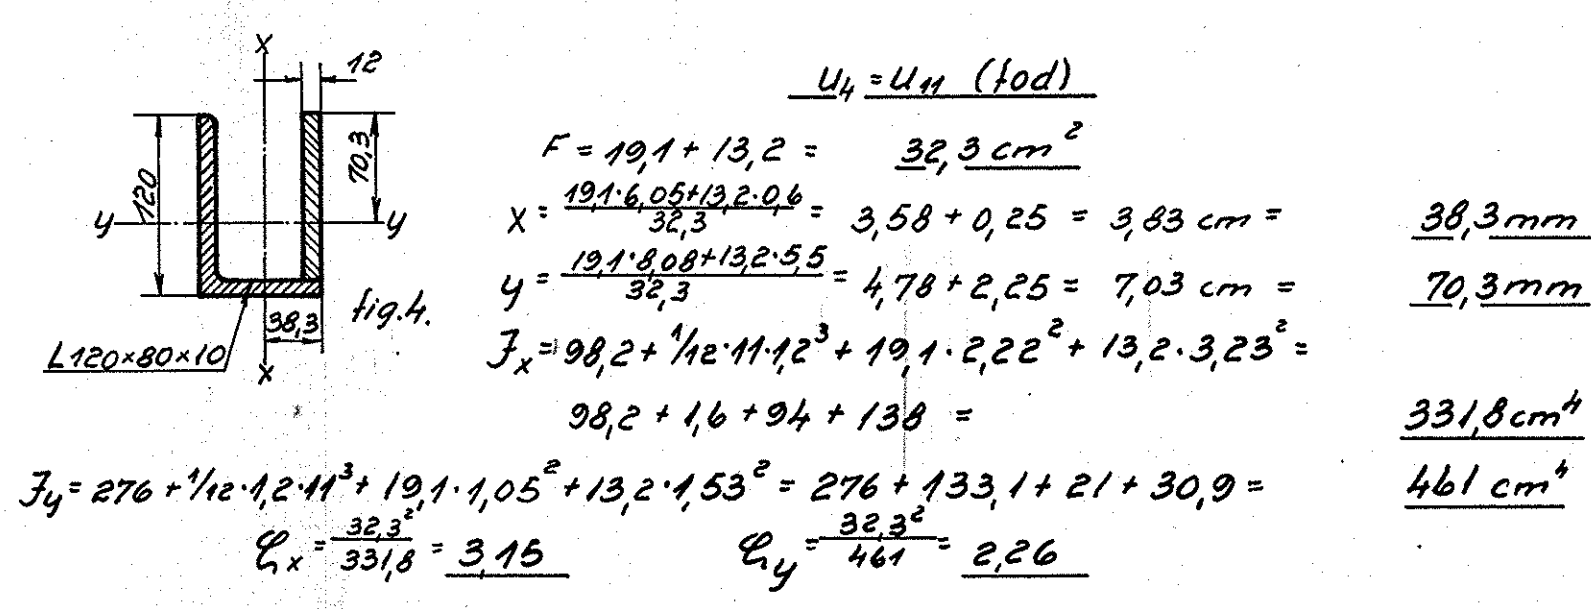 x
12
120
70,3
y y
fig.4.
38,3
L120×80×10
x
U₄ = U₁₁ (fod)
F = 19,1 + 13,2 = 32,3 cm²
x = (19,1·6,05+13,2·0,6)/32,3 = 3,58 + 0,25 = 3,83 cm = 38,3 mm
y = (19,1·8,08+13,2·5,5)/32,3 = 4,78 + 2,25 = 7,03 cm = 70,3 mm
Jx = 98,2 + 1/12·11·1,2³ + 19,1·2,22² + 13,2·3,23² =
98,2 + 1,6 + 94 + 138 = 331,8 cm⁴
Jy = 276 + 1/12·1,2·11³ + 19,1·1,05² + 13,2·1,53² = 276 + 133,1 + 21 + 30,9 = 461 cm⁴
ζx = 32,3²/331,8 = 3,15 ζy = 32,3²/461 = 2,26